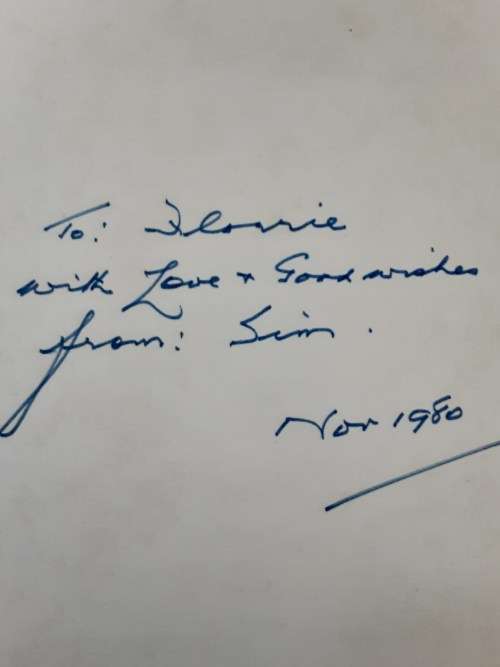 To: Florrie
with Love + Good wishes
from: Sim.
Nov 1980